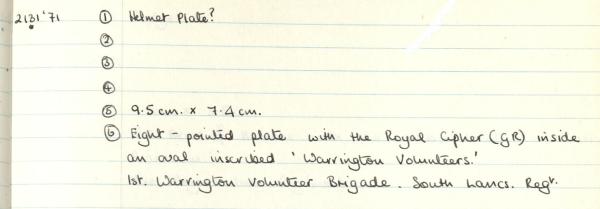 2131'71 ① Helmet Plate?
②
③
④
⑤ 9.5 cm. x 7.4 cm.
⑥ Eight-pointed plate with the Royal Cipher (GR) inside
an oval inscribed 'Warrington Volunteers.'
1st. Warrington Volunteer Brigade. South Lancs. Regt.